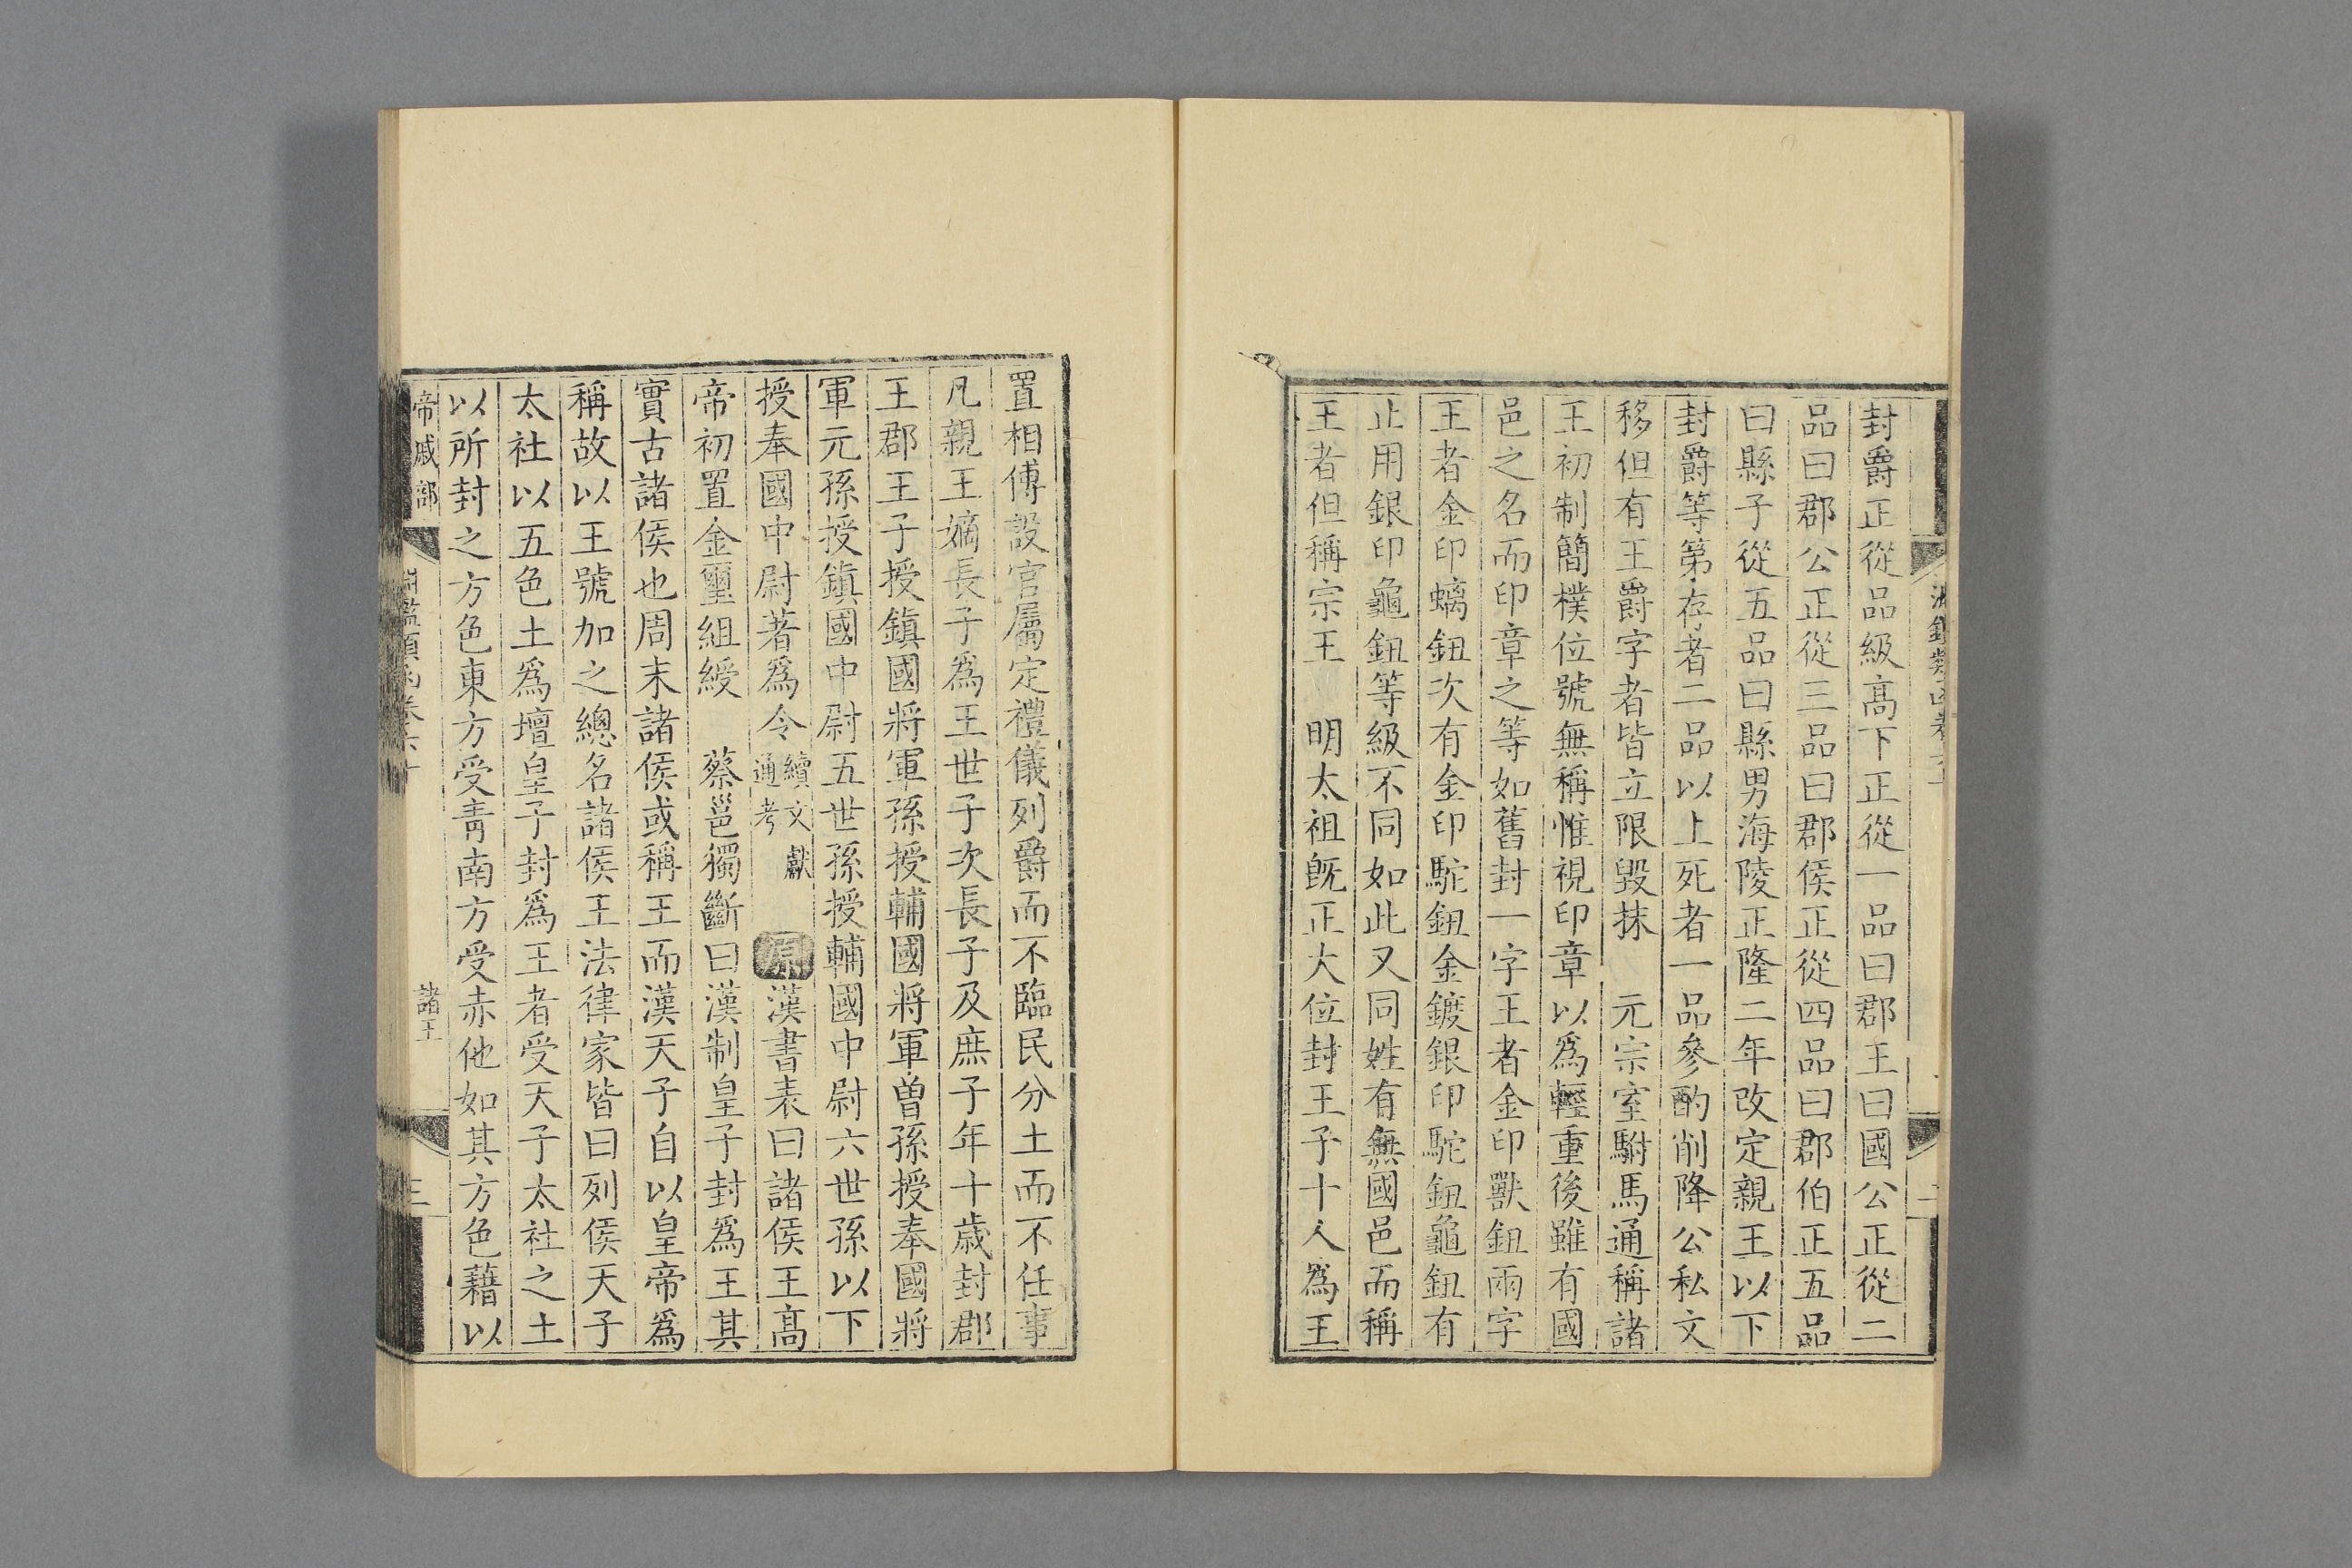 封爵正從品級高下正從一品曰郡王曰國公正從二
品曰郡公正從三品曰郡侯正從四品曰郡伯正五品
曰縣子從五品曰縣男海陵正隆二年改定親王以下
封爵等第存者二品以上死者一品參酌削降公私文
移但有王爵字者皆立限毀抹　元宗室駙馬通稱諸
王初制簡樸位號無稱惟視印章以爲輕重後雖有國
邑之名而印章之等如舊封一字王者金印獸鈕兩字
王者金印螭鈕次有金印駝鈕金鍍銀印駝鈕龜鈕有
止用銀印龜鈕等級不同如此又同姓有無國邑而稱
王者但稱宗王　明太祖旣正大位封王子十人爲王
置相傅設官屬定禮儀列爵而不臨民分土而不任事
凡親王嫡長子爲王世子次長子及庶子年十歲封郡
王郡王子授鎮國將軍孫授輔國將軍曾孫授奉國將
軍元孫授鎮國中尉五世孫授輔國中尉六世孫以下
授奉國中尉著爲令續文獻通考　原漢書表曰諸侯王高
帝初置金璽組綬　蔡邕獨斷曰漢制皇子封爲王其
實古諸侯也周末諸侯或稱王而漢天子自以皇帝爲
稱故以王號加之總名諸侯王法律家皆曰列侯天子
太社以五色土爲壇皇子封爲王者受天子太社之土
以所封之方色東方受青南方受赤他如其方色藉以
帝戚部　諸王　三